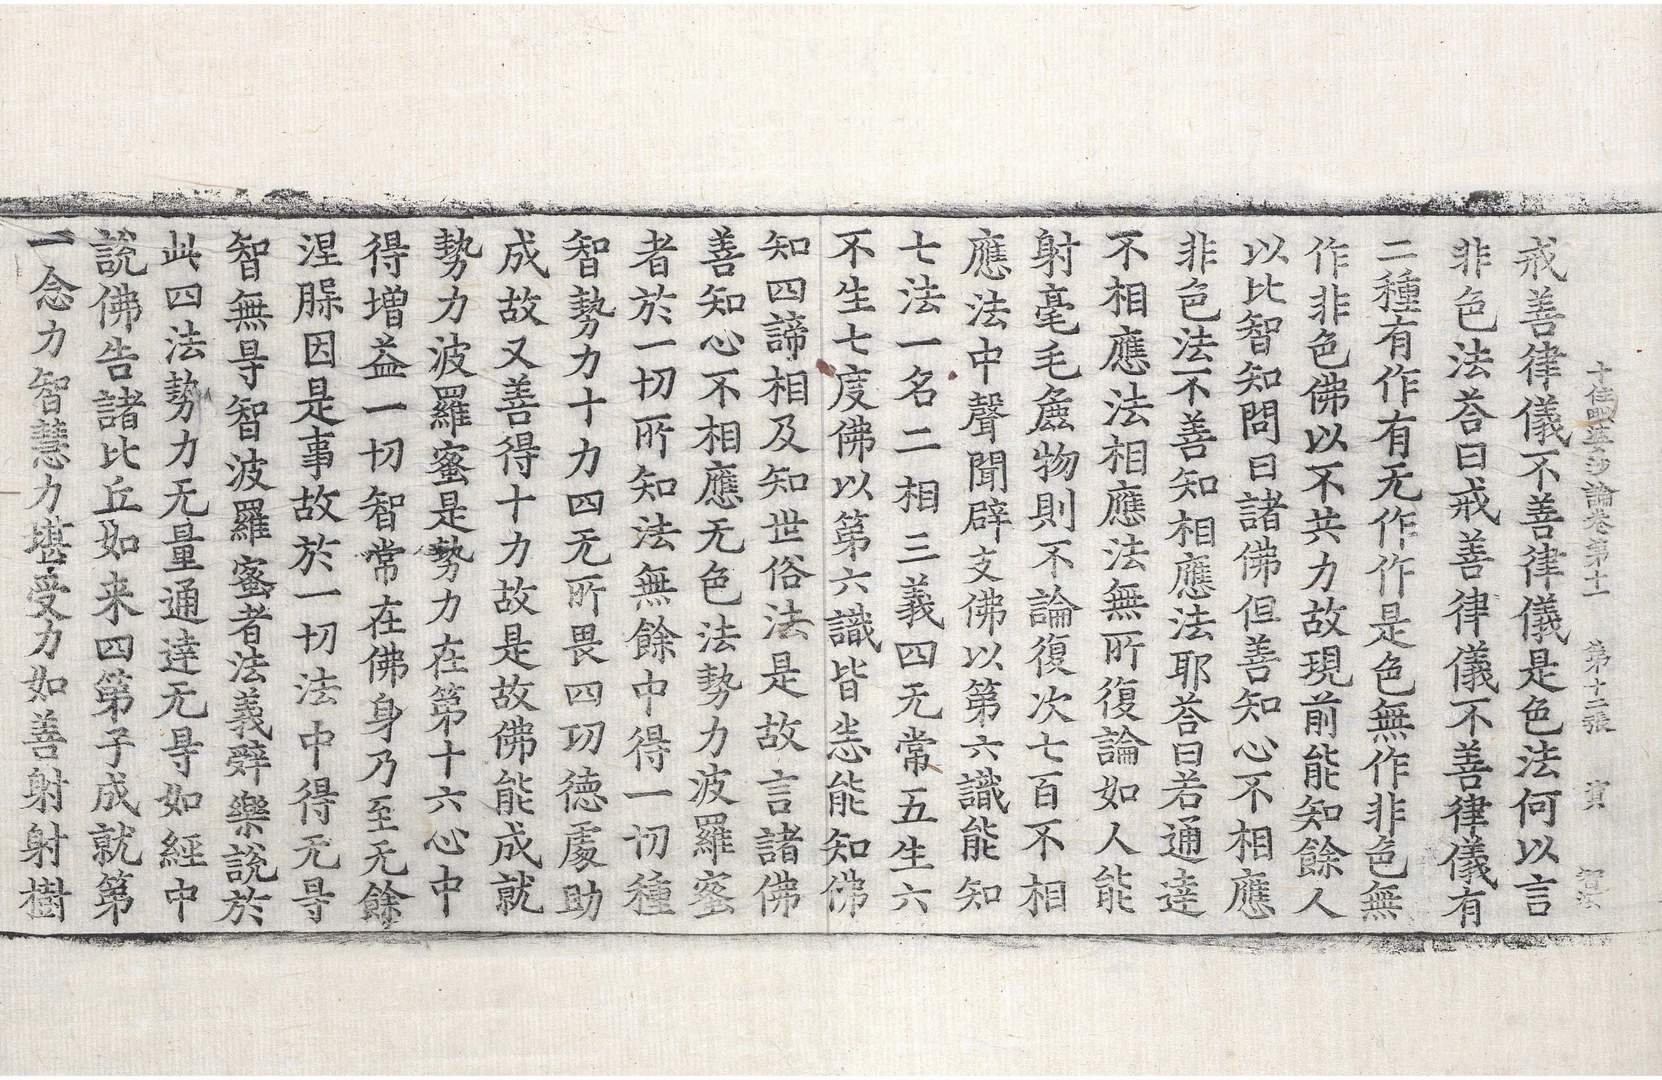 十住毗婆沙論卷第十一　第十三張　賓
戒善律儀不善律儀是色法何以言
非色法荅曰戒善律儀不善律儀有
二種有作有无作作是色無作非色無
作非色佛以不共力故現前能知餘人
以比智知問曰諸佛但善知心不相應
非色法不善知相應法耶荅曰若通達
不相應法相應法無所復論如人能
射毫毛麁物則不論復次七百不相
應法中聲聞辟支佛以第六識能知
七法一名二相三義四无常五生六
不生七度佛以第六識皆悉能知佛
知四諦相及知世俗法是故言諸佛
善知心不相應无色法勢力波羅蜜
者於一切所知法無餘中得一切種
智勢力十力四无所畏四功德處助
成故又善得十力故是故佛能成就
勢力波羅蜜是勢力在第十六心中
得增益一切智常在佛身乃至无餘
涅槃因是事故於一切法中得无㝵
智無㝵智波羅蜜者法義辭樂說於
此四法勢力无量通達无㝵如經中
說佛告諸比丘如来四第子成就第
一念力智慧力堪受力如善射射樹